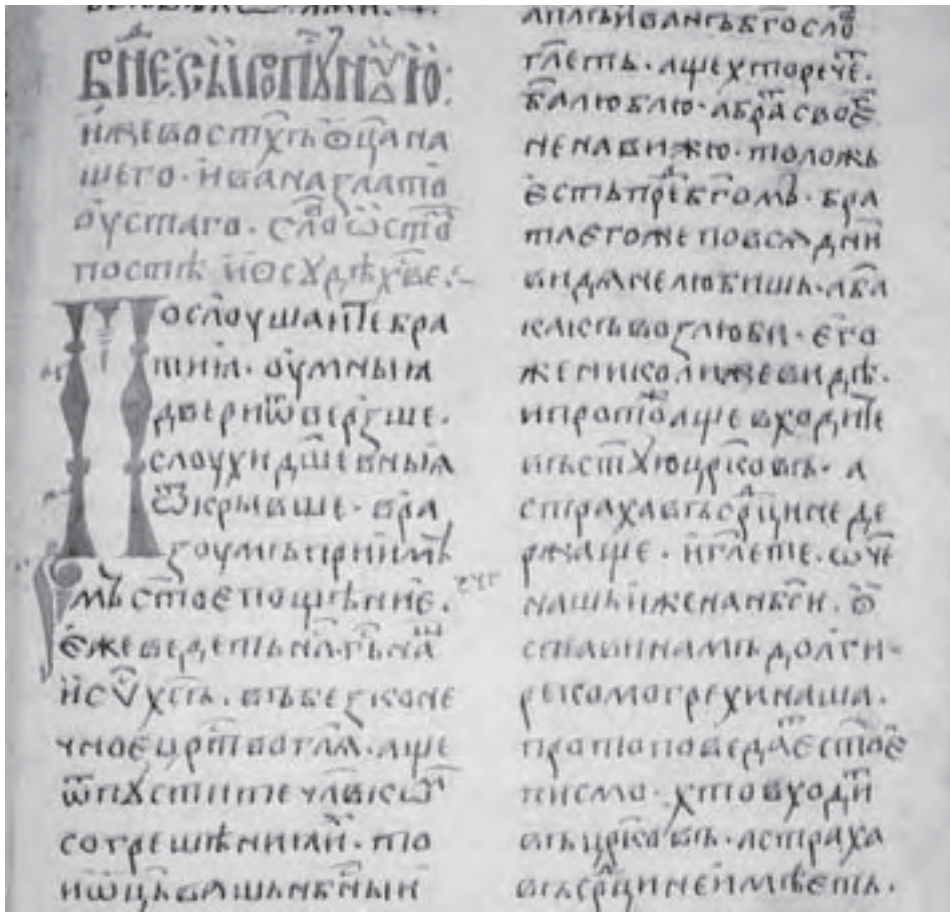 иже во ст҃хъ ѿц҃а на
шего · и҆вана злато
оустаго · сло̑ ѡ ст҃о̑
постѣ и ѡсужⷣе
Послоушаите бра
тиꙗ · оумныꙗ
двери ѿверзше ·
слоухи дш҃евныꙗ
ѿкрывше · а ра
зоумъ приим
мъ ст҃ое пощенние ·
еже ведеть на г҃ь на̑ш
и҆с ѵ҃ х҃съ · въ бесконе
чное црⷭ҇тво гл҃ѧ · аще
ѿпустите чл҃вкѡм
согрешѣниꙗ и҆ · то
и ѿц҃ь вашь нбⷭ҇ный
ап҃лъ и҆ванъ бг҃осло
гл҃еть · аще хто рече ·
б҃а люблю · а бра̑та свое
ненавижю · то ложь
есть преⷣ бг҃омъ · бра
та его же по всѧ дни
видѧ не любишь · а б҃а
какъ возлюби · его
же николиже виде ·
и прото̑ аще входите
въ ст҃ую цр҃ковь · а
страха въ срⷣци не де
ржаще · и гл҃ете · ѿч҃е
нашь иже на нб҃си · ѿ
стави намъ долги
рекомо грехи наша ·
прото поведа̑еть ст҃ое
писмо · хто входи̑ть
въ цр҃ковь · а страха
въ срⷣци не имѣеть ·